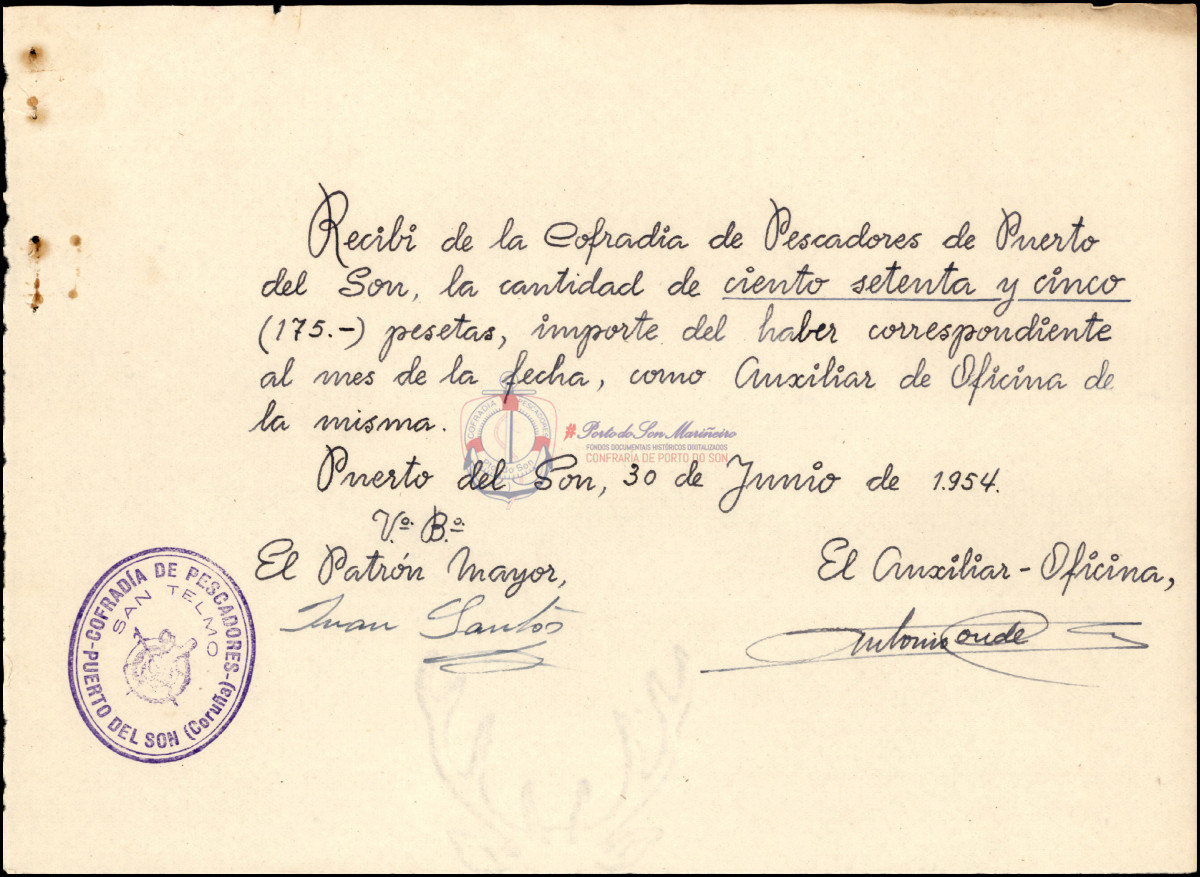 Recibi de la Cofradia de Pescadores de Puerto
del Son, la cantidad de ciento setenta y cinco
(175.-) pesetas, importe del haber correspondiente
al mes de la fecha, como Auxiliar de Oficina de
la misma.
COFRADIA PESCADORES
Porto do Son
#Porto do Son Mariñeiro
FONDOS DOCUMENTAIS HISTÓRICOS DIXITALIZADOS
CONFRARÍA DE PORTO DO SON
Puerto del Son, 30 de Junio de 1.954.
V.º B.º
El Patrón Mayor,
El Auxiliar-Oficina,
Juan Santos
Antonio
COFRADÍA DE PESCADORES-
SAN TELMO
PUERTO DEL SON (Coruña)-